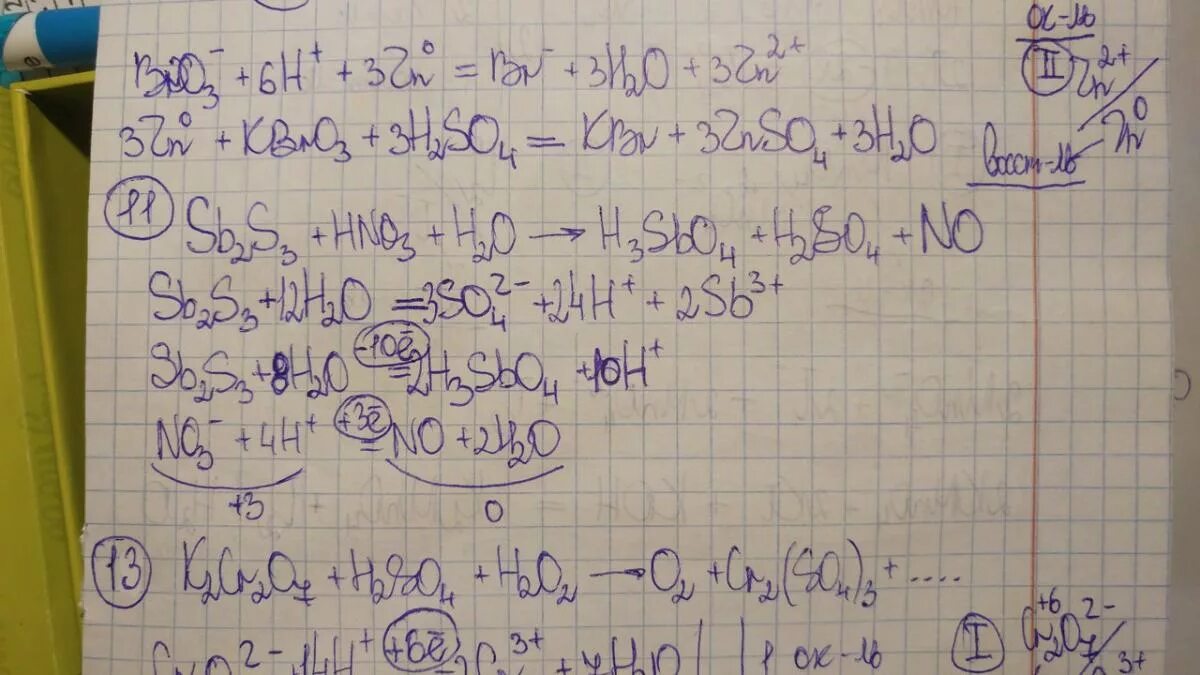 BrO₃⁻ + 6H⁺ + 3Zn⁰ = Br⁻ + 3H₂O + 3Zn²⁺
3Zn⁰ + KBrO₃ + 3H₂SO₄ = KBr + 3ZnSO₄ + 3H₂O
ок-ль
II Zn²⁺ / Zn⁰
восст-ль
11 Sb₂S₃ + HNO₃ + H₂O → H₃SbO₄ + H₂SO₄ + NO
Sb₂S₃ + 12H₂O = 3SO₄²⁻ + 24H⁺ + 2Sb³⁺
Sb₂S₃ + 8H₂O -10ē = 2H₃SbO₄ + 10H⁺
NO₃⁻ + 4H⁺ +3ē = NO + 2H₂O
+3 0
13 K₂Cr₂O₇ + H₂SO₄ + H₂O₂ → O₂ + Cr₂(SO₄)₃ + ....
14H⁺ +6ē 3+ + 7H₂O | | 1 ок-ль
I Cr₂⁺⁶O₇²⁻ / 3+